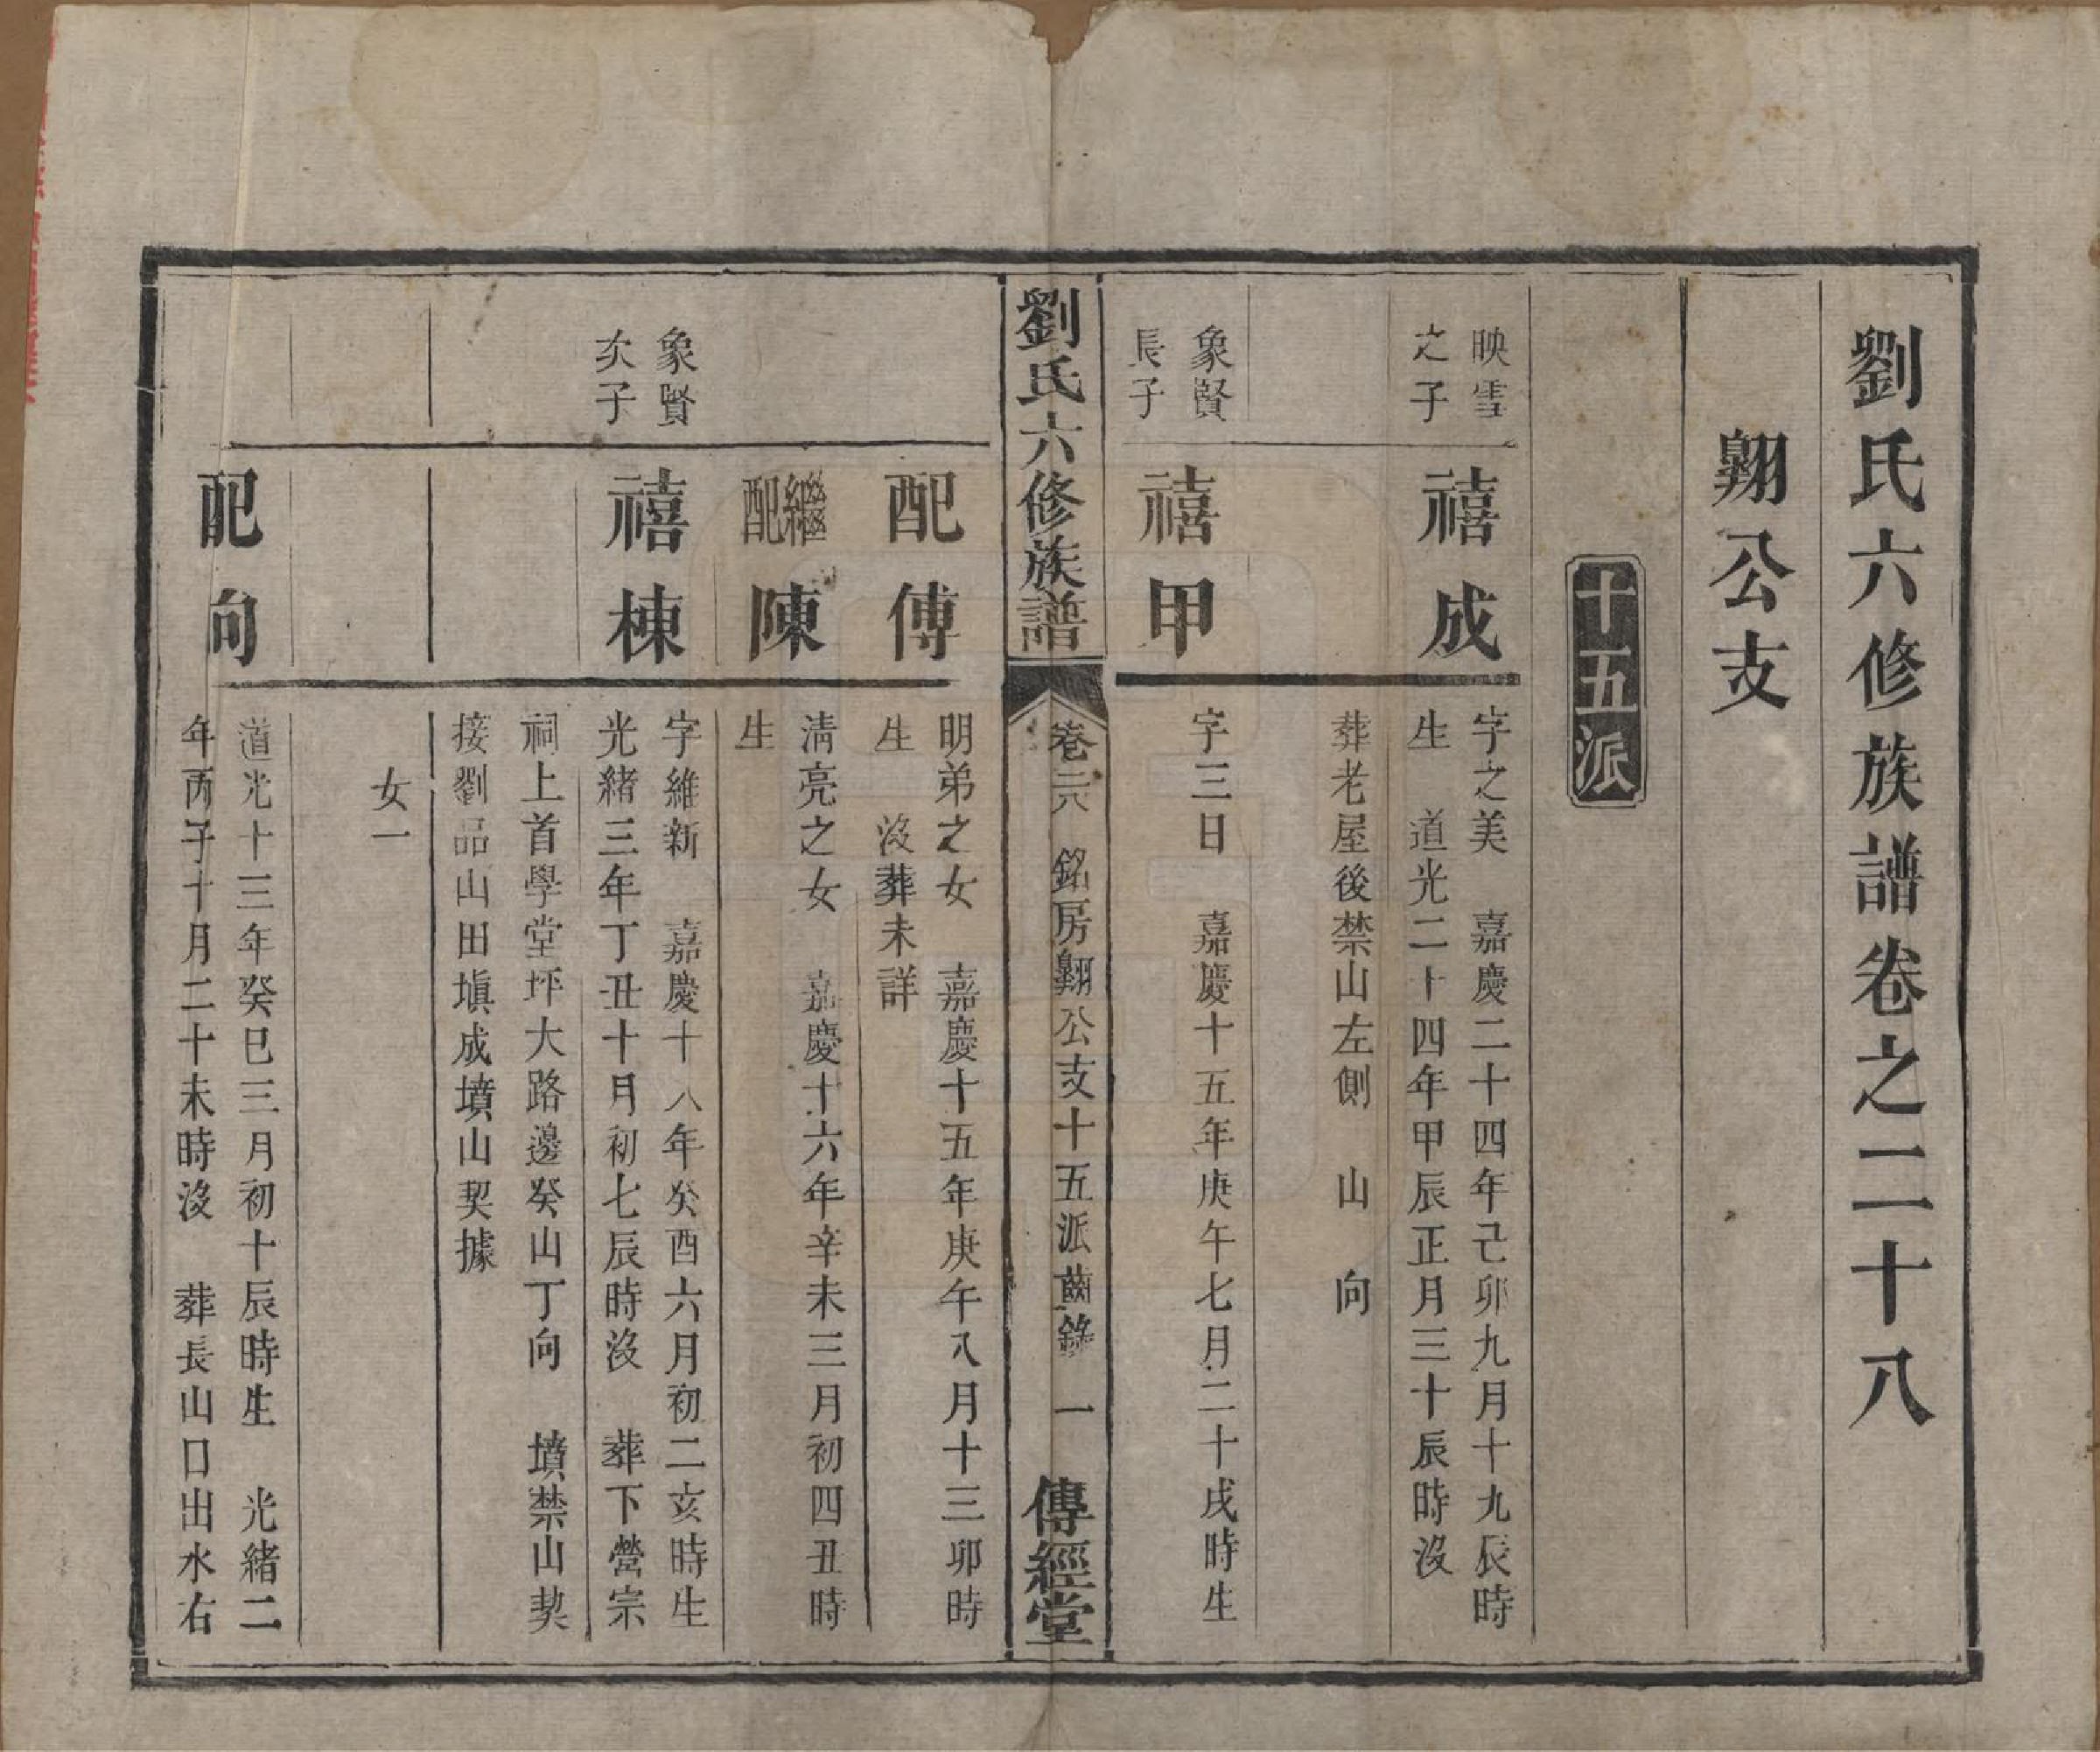 劉氏六修族譜卷之二十八
翺公支
十五派
映雪
之子
禧成
字之美　嘉慶二十四年己卯九月十九辰時
生　道光二十四年甲辰正月三十辰時沒
葬老屋後禁山左側　山　向
象賢
長子
禧甲
字三日　嘉慶十五年庚午七月二十戌時生
劉氏六修族譜
卷二八　銘房翺公支十五派齒錄　一
傳經堂
配傅
明弟之女　嘉慶十五年庚午八月十三卯時
生　沒葬未詳
繼配陳
清亮之女　嘉慶十六年辛未三月初四丑時
生
象賢
次子
禧棟
字維新　嘉慶十八年癸酉六月初二亥時生
光緒三年丁丑十月初七辰時沒　葬下營宗
祠上首學堂坪大路邊癸山丁向　墳禁山契
接劉品山田塡成墳山契據
女一
配向
道光十三年癸巳三月初十辰時生　光緒二
年丙子十月二十未時沒　葬長山口出水右